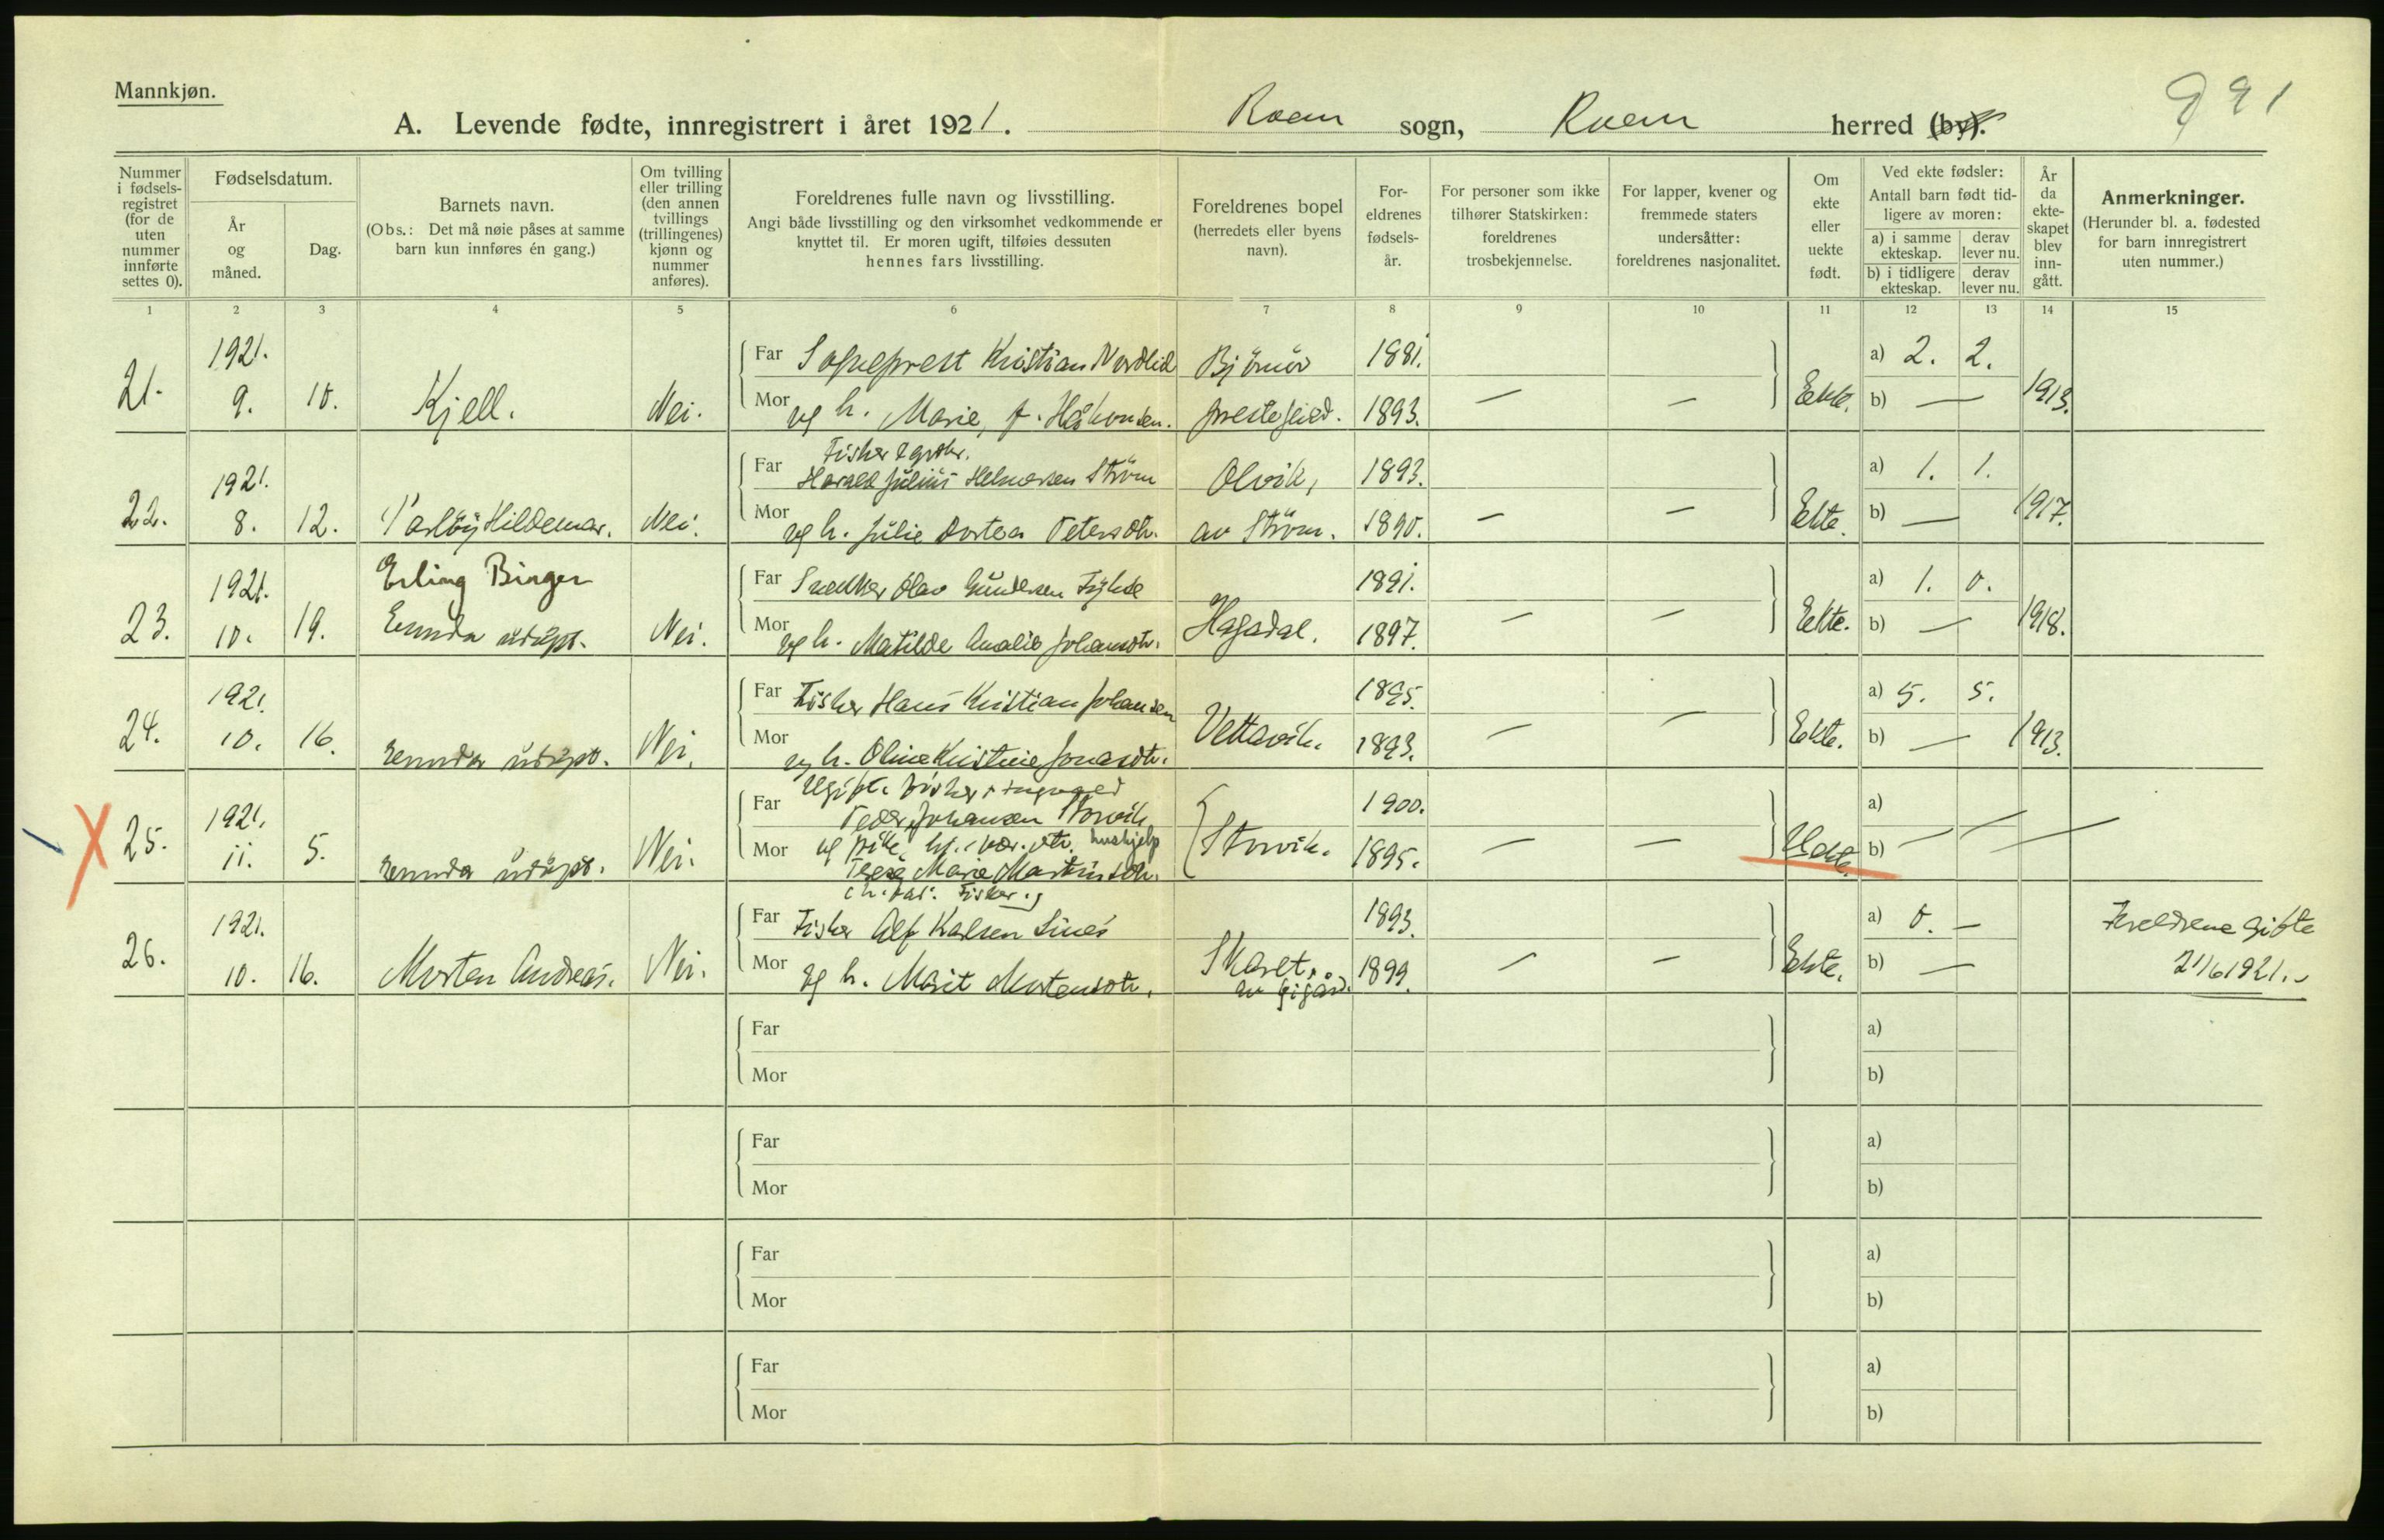 Mannkjøn.
991
A. Levende fødte, innregistrert i året 1921. Roan sogn, Roan herred (by).
Nummer i fødsels-registret (for de uten nummer innførte settes 0).
Fødselsdatum.
År og måned.
Dag.
Barnets navn.
(Obs.: Det må nøie påses at samme barn kun innføres én gang.)
Om tvilling eller trilling (den annen tvillings (trillingenes) kjønn og nummer anføres).
Foreldrenes fulle navn og livsstilling.
Angi både livsstilling og den virksomhet vedkommende er knyttet til. Er moren ugift, tilføies dessuten hennes fars livsstilling.
Foreldrenes bopel (herredets eller byens navn).
For-eldrenes fødsels-år.
For personer som ikke tilhører Statskirken: foreldrenes trosbekjennelse.
For lapper, kvener og fremmede staters undersåtter: foreldrenes nasjonalitet.
Om ekte eller uekte født.
Ved ekte fødsler: Antall barn født tid-ligere av moren:
a) i samme ekteskap.
derav lever nu.
b) i tidligere ekteskap.
derav lever nu.
År da ekte-skapet blev inn-gått.
Anmerkninger.
(Herunder bl. a. fødested for barn innregistrert uten nummer.)
1 2 3 4 5 6 7 8 9 10 11 12 13 14 15
21. 1921. 9. 10. Kjell. Nei.
Far Sogneprest Kristian Nordlid Bjørnør 1881. a) 2. 2.
Mor og h. Marie, f. Håkonsen. prestegjeld. 1893. — — Ekte. b) — 1913.
22. 1921. 8. 12. Hildemar. Nei.
Far Fisker Harald Julius Helmersen Strøm Olvik, 1893. a) 1. 1.
Mor og h. Julie Dortea Petersdtr. av Strøm. 1890. — — Ekte. b) — 1917.
Erling Birger
23. 1921. 10. 19. Ennda udøpt. Nei.
Far Snedker Olav Gundersen 1891. a) 1. 0.
Mor og h. Matilde Amalie Johansdtr. Hagadal. 1897. — — Ekte. b) — 1918.
24. 1921. 10. 16. Ennda udøpt. Nei.
Far Fisker Hans Kristian Johansen Vettavik. 1895. a) 5. 5.
Mor og h. Oline Kristine Jonasdtr. 1893. — — Ekte. b) — 1913.
25. 1921. 11. 5. Ennda udøpt. Nei.
Far Ugift. fisker Peder Johansen Storvik 1900. a)
Mor og pike hushjelp Marie Martinsdtr. (h. far: Fisker.) Storvik. 1895. — — Uekte. b) — — —
26. 1921. 10. 16. Morten Andreas. Nei.
Far Fisker Alf Karlsen 1893. a) 0. — Foreldrene gifte
Mor og h. Marit Mortensdtr. Skaret, 1899. — — Ekte. b) — 21/6 1921.
Far a)
Mor b)
Far a)
Mor b)
Far a)
Mor b)
Far a)
Mor b)